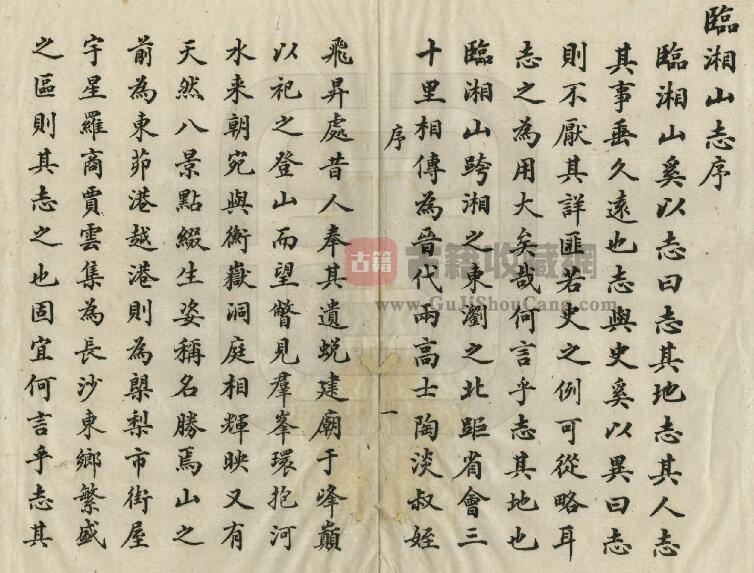 臨湘山志序
臨湘山奚以志曰志其地志其人志
其事垂久遠也志與史奚以異曰志
則不厭其詳匪若史之例可從略耳
志之為用大矣哉何言乎志其地也
臨湘山跨湘之東瀏之北距省會三
十里相傳為晉代兩高士陶淡叔姪
序
一
飛昇處昔人奉其遺蛻建廟于峰巔
以祀之登山而望瞥見羣峯環抱河
水来朝宛與衡嶽洞庭相輝映又有
天然八景點綴生姿稱名勝焉山之
前為東茆港越港則為㮚梨市街屋
宇星羅商賈雲集為長沙東鄉繁盛
之區則其志之也固宜何言乎志其
古籍
古籍收藏網
www.GuJiShouCang.com